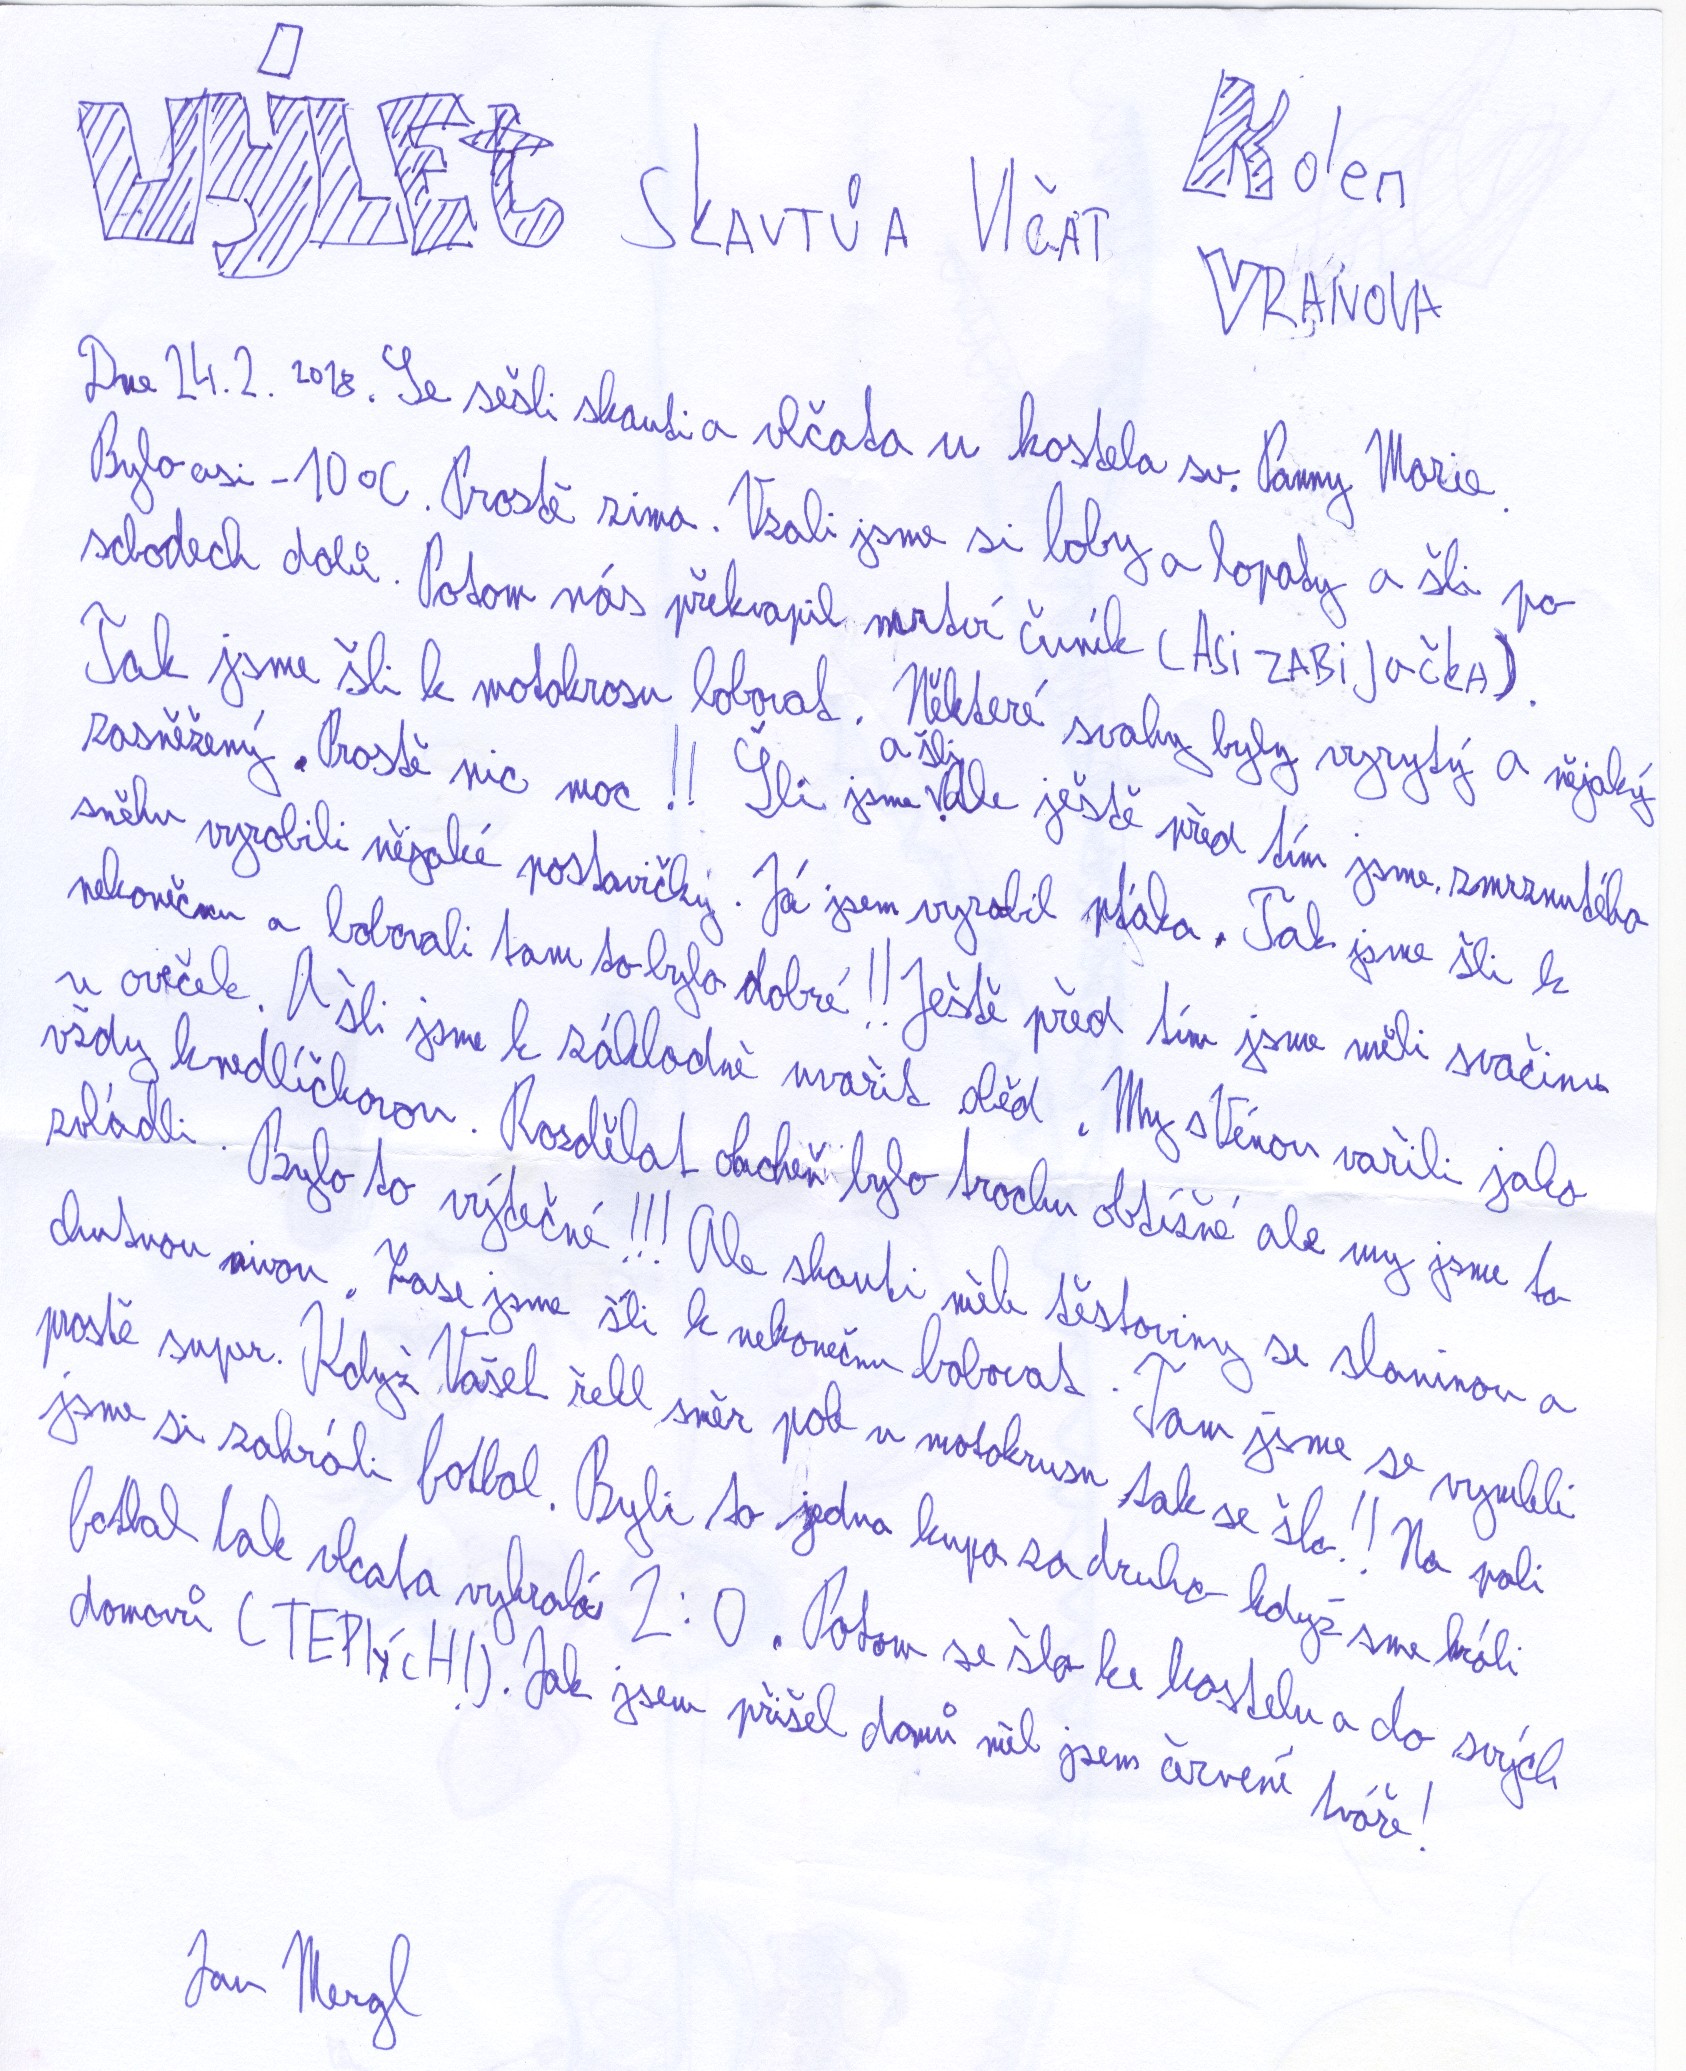 VÝLEt SKAVTŮ A VlČAT Kolen
VRANOVA
Dne 24.2. 2018. Se sešli skauti a vlčata u kostela sv. Panny Marie.
Bylo asi -10 °C. Prostě zima. Vzali jsme si boby a lopaty a šli po
schodech dolů. Potom nás překvapil mrtví čuník (ASi ZABiJAČKA).
Tak jsme šli k motokrosu bobovat. Některé svahy byly vyrytý a nějaký
zasněžený. Prostě nic moc!! Šli jsme a šli. Ale ještě před tím jsme zmrznutého
sněhu vyrobili nějaké postavičky. Já jsem vyrobil ptáka. Tak jsme šli k
nekonečnu a bobovali tam to bylo dobré!! Ještě před tím jsme měli svačinu
u oviček. A šli jsme k základně uvařit oběd. My s Vénou vařili jako
vždy knedlíčkovou. Rozdělat oheň bylo trochu obtížné ale my jsme to
zvládli. Bylo to výtečné!!! Ale skauti měli těstoviny se slaninou a
chutnou nivou. Zase jsme šli k nekonečnu bobovat. Tam jsme se vymkli
prostě super. Když Vašek řekl směr pole u motokrusu tak se šlo!! Na poli
jsme si zahráli fotbal. Byli to jedna kupa za druho když sme hráli
fotbal tak vlcata vyhrála 2:0. Potom se šlo ke kostelu a do svých
domovů (TEPlÝcH!). Jak jsem přišel domů měl jsem červené tváře!
Jan Mergl